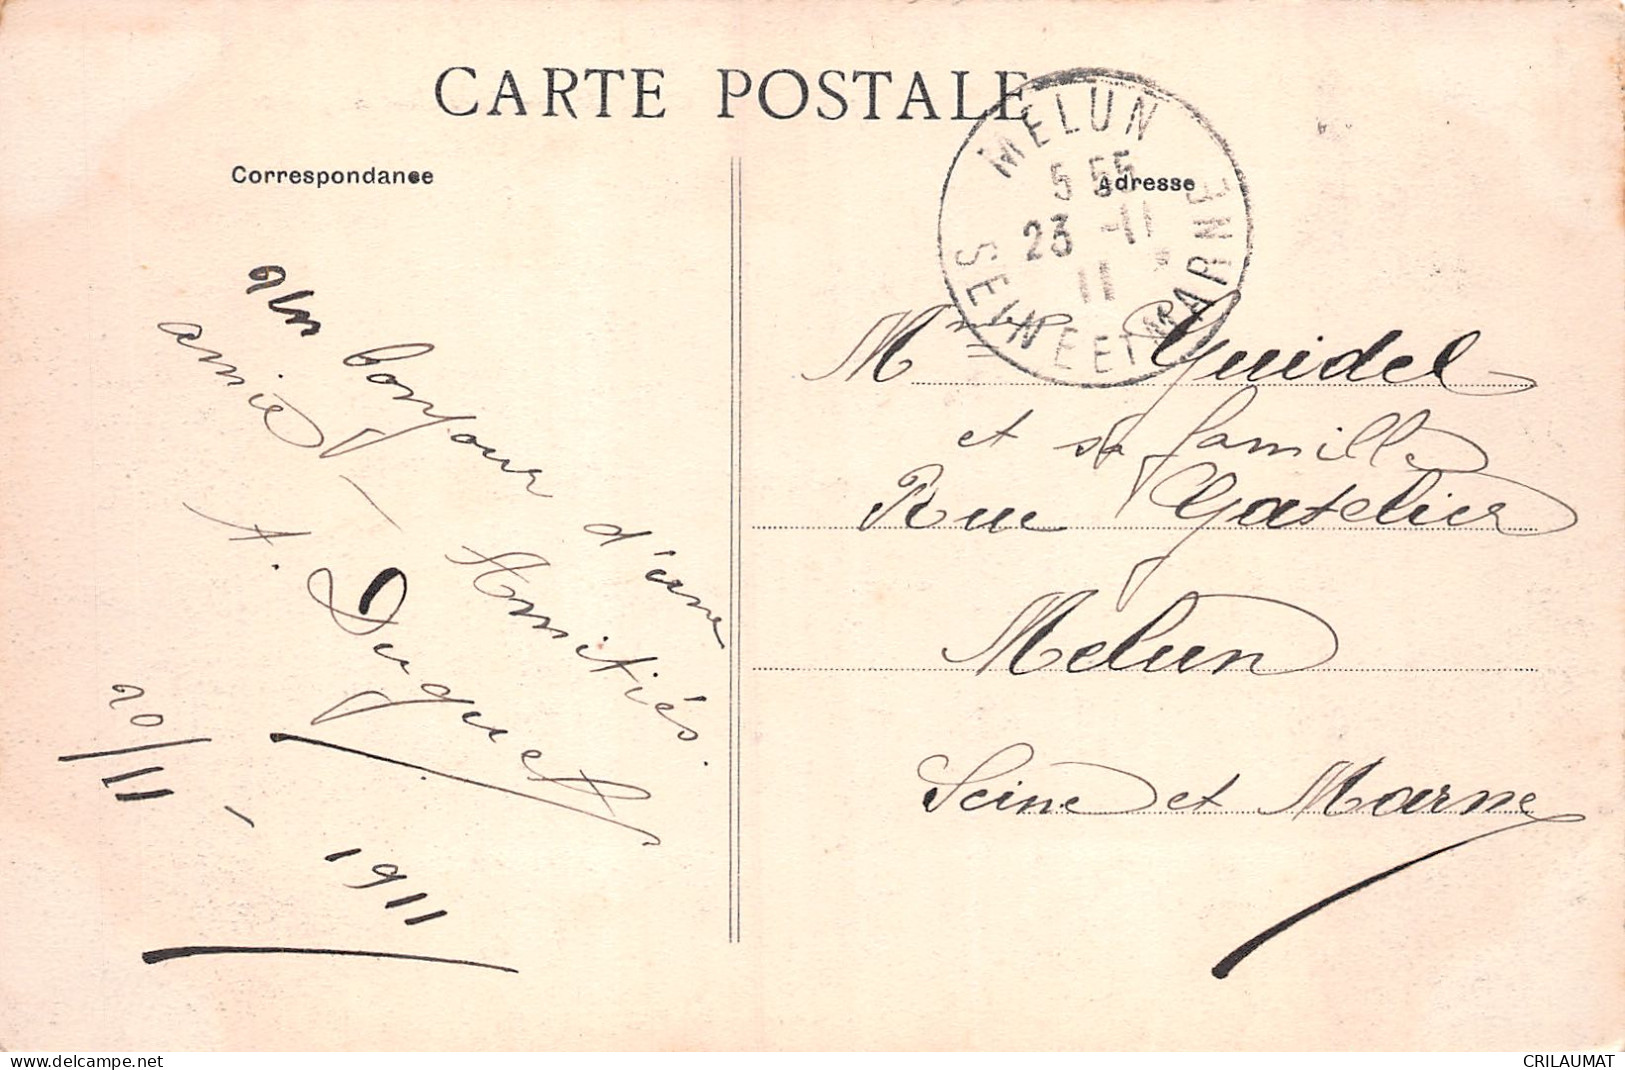 CARTE POSTALE
Correspondance
Adresse
MELUN
5 55
23 -11
11
SEINE ET MARNE
Un bonjour d'une
amie – Amitiés.
A. Duguet
20/11 – 1911
Guidel
et sa famille
Rue Gatelier
Melun
Seine et Marne
www.delcampe.net
CRILAUMAT